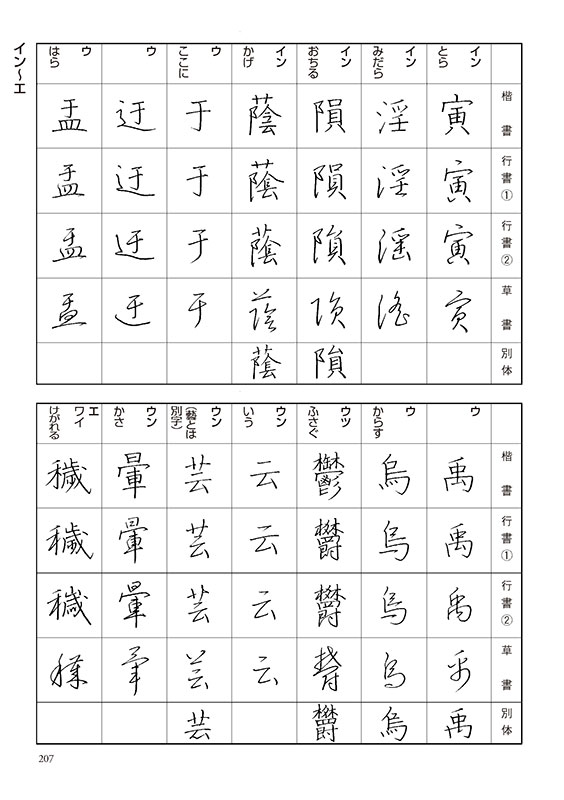 イン〜エ
楷書
行書①
行書②
草書
別体
イン
とら
寅
寅
寅
寅
イン
みだら
淫
淫
淫
淫
イン
おちる
隕
隕
隕
隕
隕
イン
かげ
蔭
蔭
蔭
蔭
蔭
ウ
ここに
于
于
于
于
ウ
迂
迂
迂
迂
ウ
はら
盂
盂
盂
盂
楷書
行書①
行書②
草書
別体
ウ
禹
禹
禹
禹
禹
ウ
からす
烏
烏
烏
烏
烏
ウツ
ふさぐ
鬱
鬱
鬱
鬱
鬱
ウン
いう
云
云
云
云
ウン
(藝とは
別字)
芸
芸
芸
芸
芸
ウン
かさ
暈
暈
暈
暈
エ
ワイ
けがれる
穢
穢
穢
穢
207